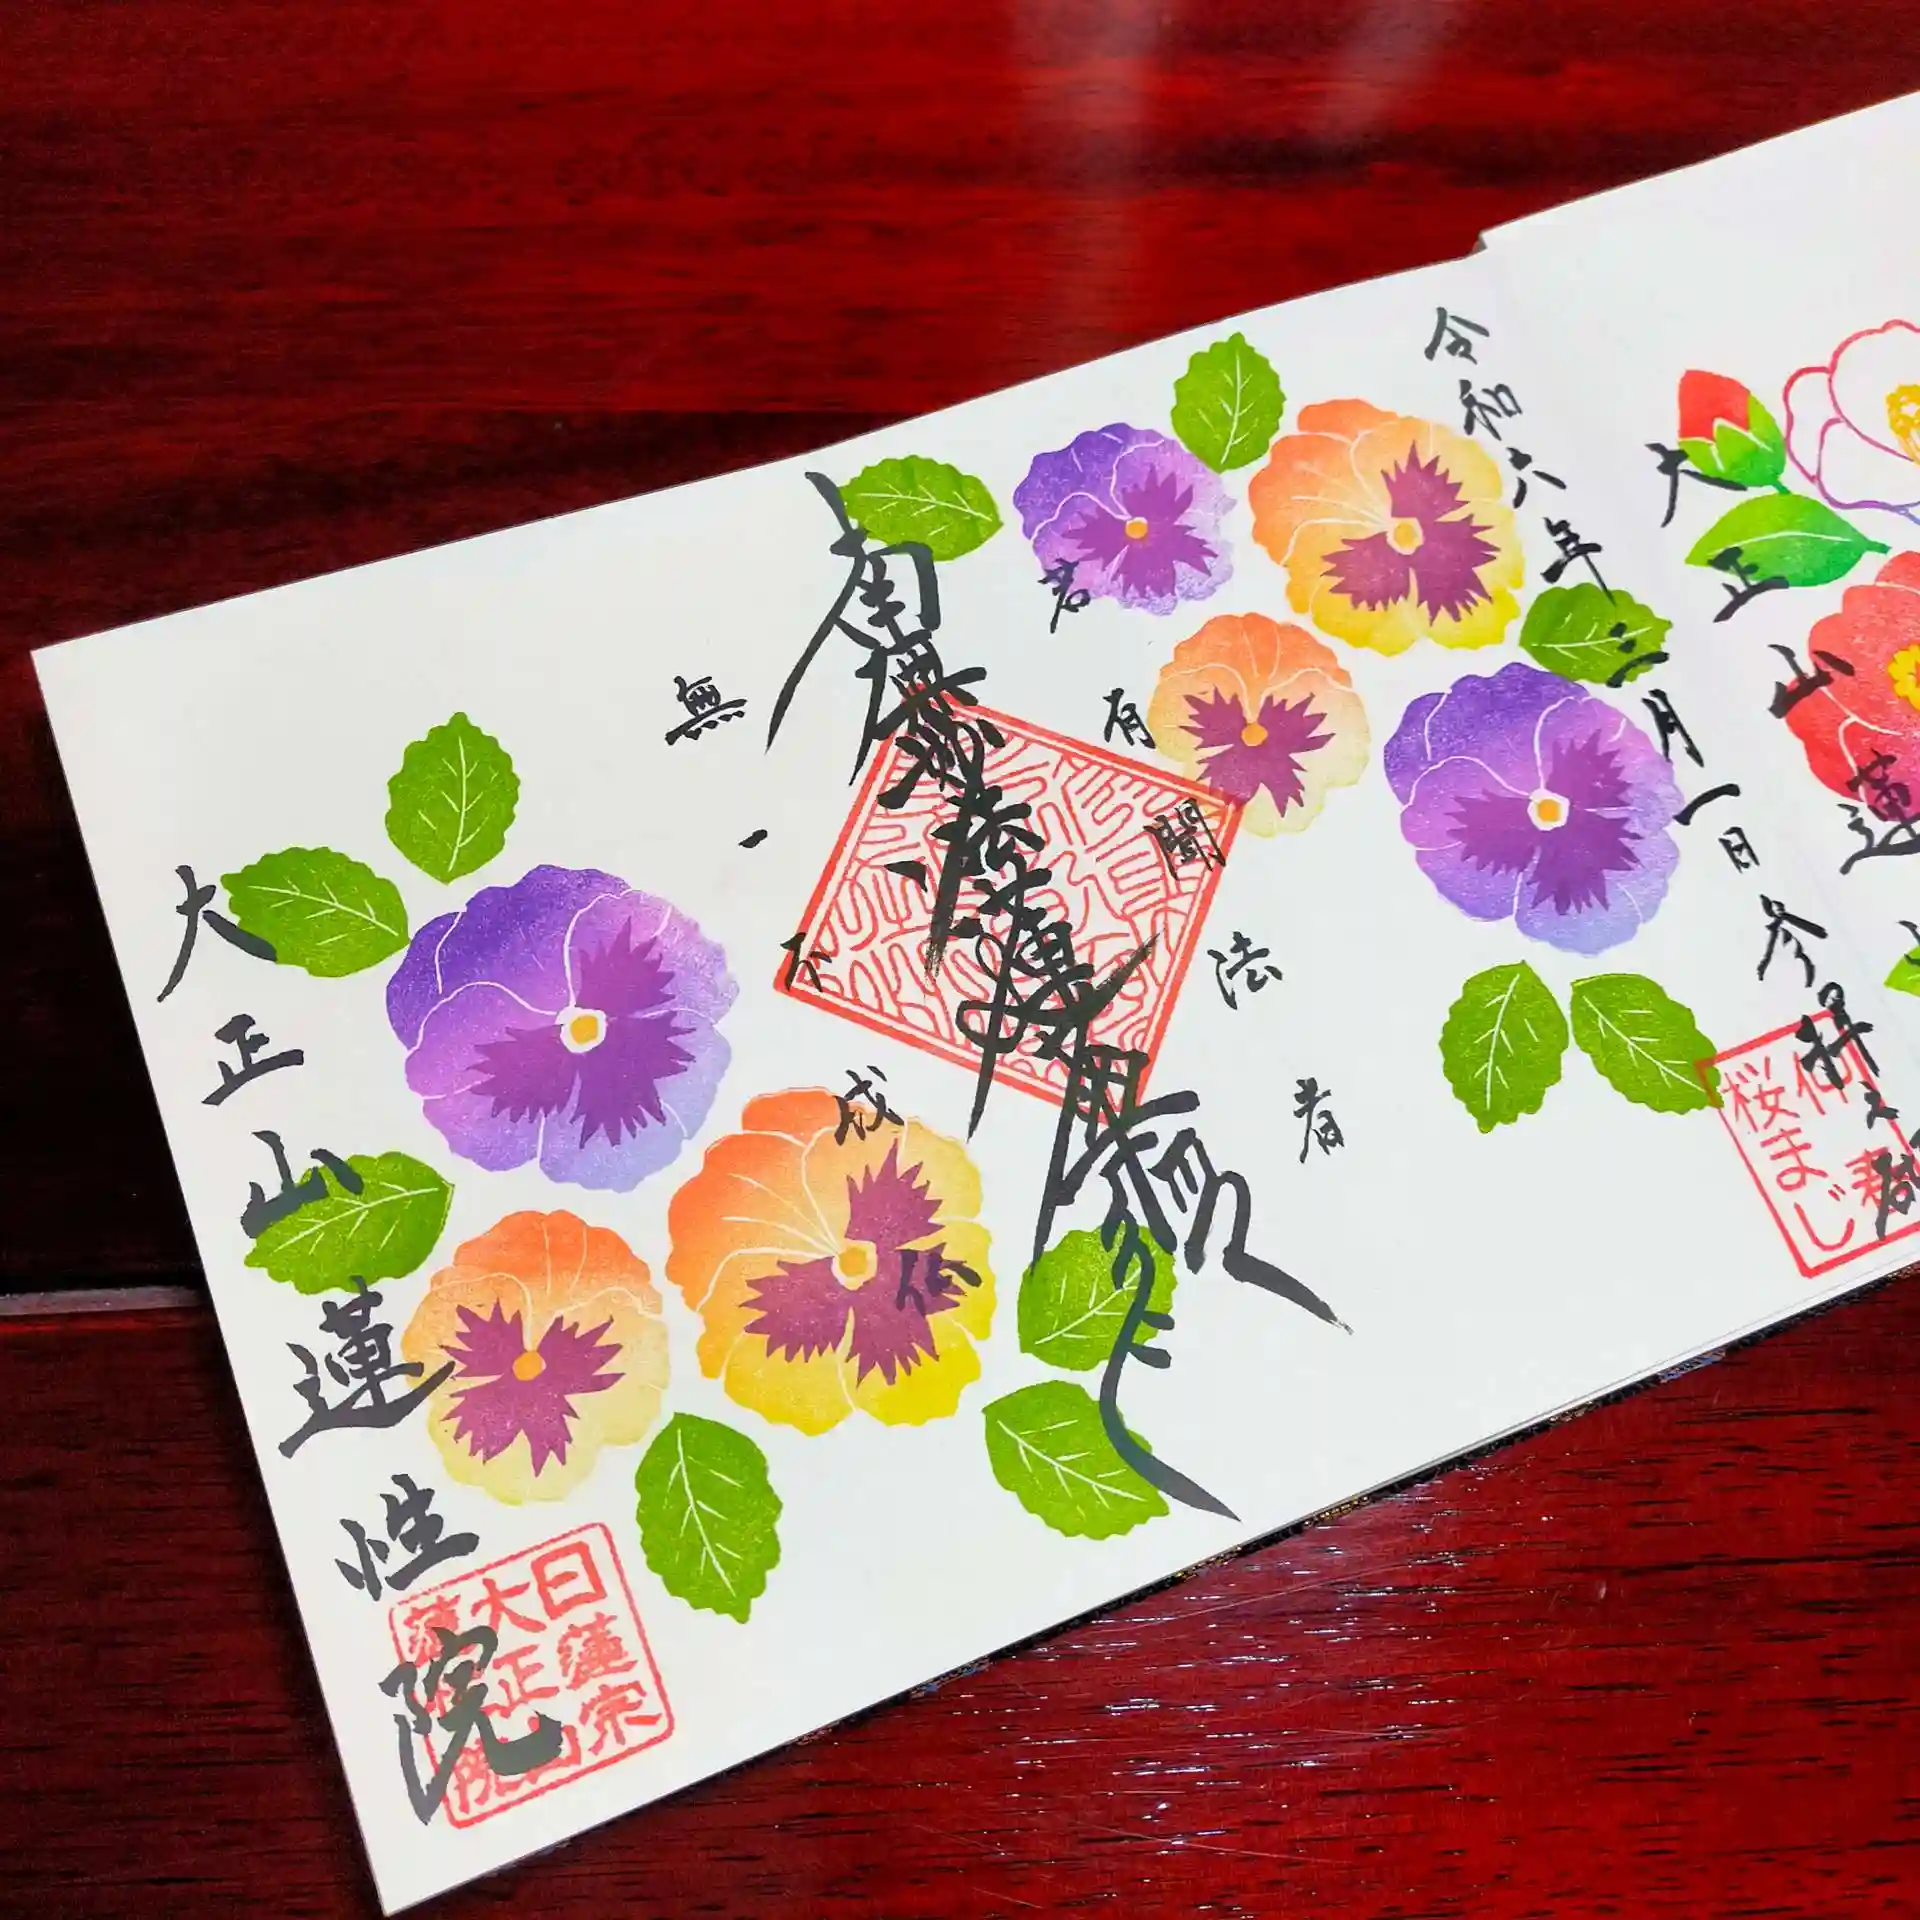 大正山蓮
令和六年三月一日参拝之
桜まじ
若有聞法者
南無妙法蓮華経
無一不成仏
大正山蓮性院
日蓮宗
大正山
蓮性院